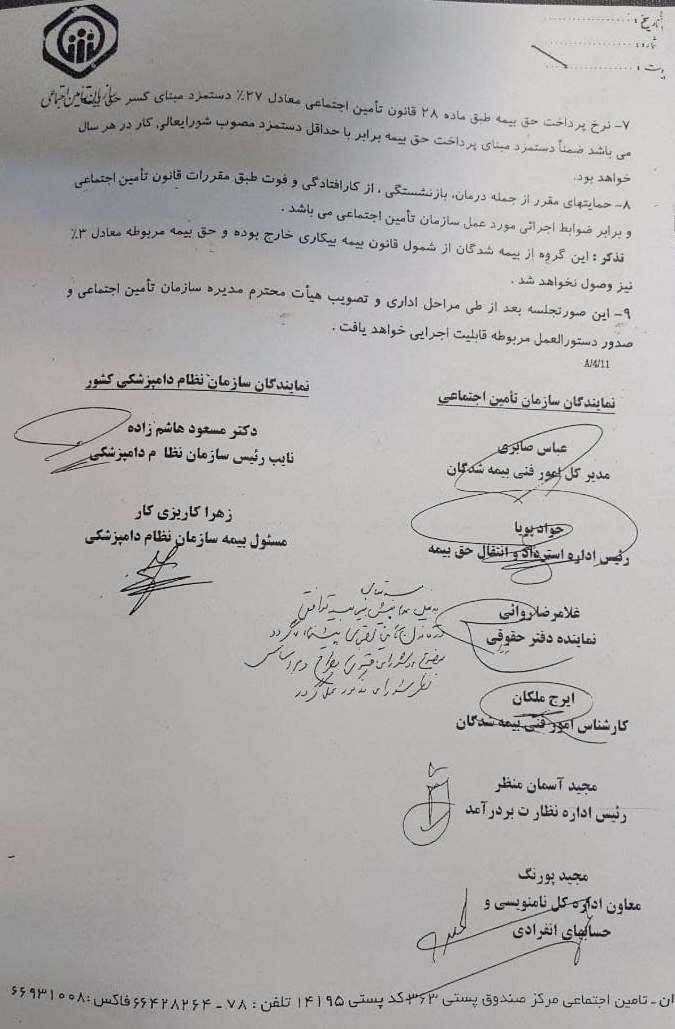 تاریخ :
شماره :
پیوست :
سازمان تأمین اجتماعی
۷- نرخ پرداخت حق بیمه طبق ماده ۲۸ قانون تأمین اجتماعی معادل ۲۷٪ دستمزد مبنای کسر حق بیمه
می باشد ضمناً دستمزد مبنای پرداخت حق بیمه برابر با حداقل دستمزد مصوب شورایعالی کار در هر سال
خواهد بود.
۸- حمایتهای مقرر از جمله درمان، بازنشستگی ، از کارافتادگی و فوت طبق مقررات قانون تأمین اجتماعی
و برابر ضوابط اجرائی مورد عمل سازمان تأمین اجتماعی می باشد .
تذکر : این گروه از بیمه شدگان از شمول قانون بیمه بیکاری خارج بوده و حق بیمه مربوطه معادل ۳٪
نیز وصول نخواهد شد .
۹- این صورتجلسه بعد از طی مراحل اداری و تصویب هیأت محترم مدیره سازمان تأمین اجتماعی و
صدور دستورالعمل مربوطه قابلیت اجرایی خواهد یافت .
A/4/11
نمایندگان سازمان تأمین اجتماعی
عباس صابری
مدیر کل امور فنی بیمه شدگان
جواد پویا
رئیس اداره استرداد و انتقال حق بیمه
غلامرضا روانی
نماینده دفتر حقوقی
ایرج ملکان
کارشناس امور فنی بیمه شدگان
مجید آسمان منظر
رئیس اداره نظارت بردرآمد
مجید پورنگ
معاون اداره کل نامنویسی و
حسابهای انفرادی
نمایندگان سازمان نظام دامپزشکی کشور
دکتر مسعود هاشم زاده
نایب رئیس سازمان نظا م دامپزشکی
زهرا کاریزی کار
مسئول بیمه سازمان نظام دامپزشکی
ان - تامین اجتماعی مرکز صندوق پستی ۳۶۳ کد پستی ۱۴۱۹۵ تلفن : ۷۸ - ۶۶۴۲۸۲۶۴ فاکس : ۶۶۹۳۱۰۰۸